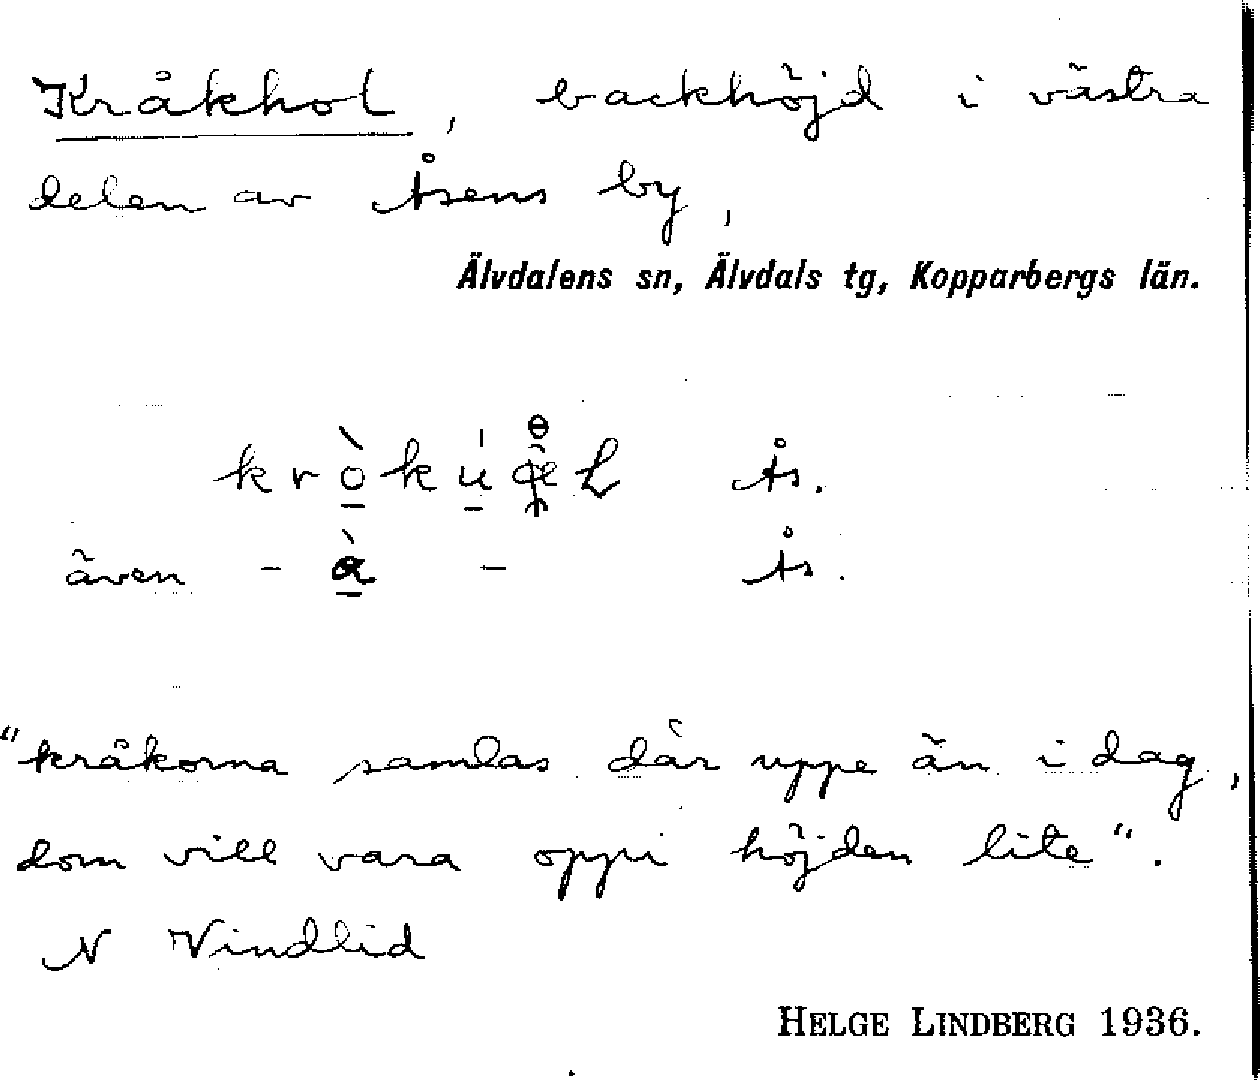 Kråkhol, backhöjd i västra
delen av Åsens by,
Älvdalens sn, Älvdals tg, Kopparbergs län.
Ås.
även - ὰ - Ås.
"kråkorna samlas där uppe än i dag,
dom vill vara oppi höjden lite".
N Vindlid
HELGE LINDBERG 1936.